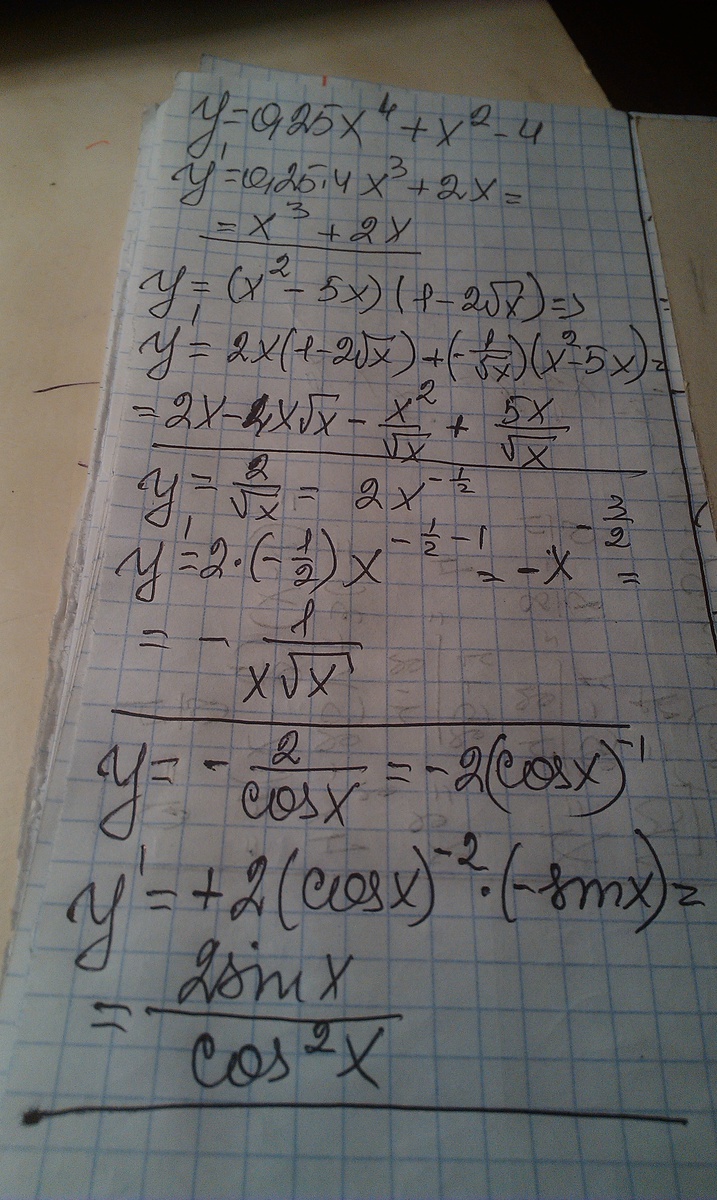 y=0,25x⁴+x²-4
y'=0,25·4x³+2x=
=x³+2x
y=(x²-5x)(1-2√x)=>
y'=2x(1-2√x)+(-1/√x)(x²-5x)=
=2x-4x√x-x²/√x+5x/√x
y=2/√x=2x^(-1/2)
y'=2·(-1/2)x^(-1/2-1)=-x^(-3/2)=
=-1/(x√x)
y=-2/cosx=-2(cosx)⁻¹
y'=+2(cosx)⁻²·(-sinx)=
=2sinx/cos²x